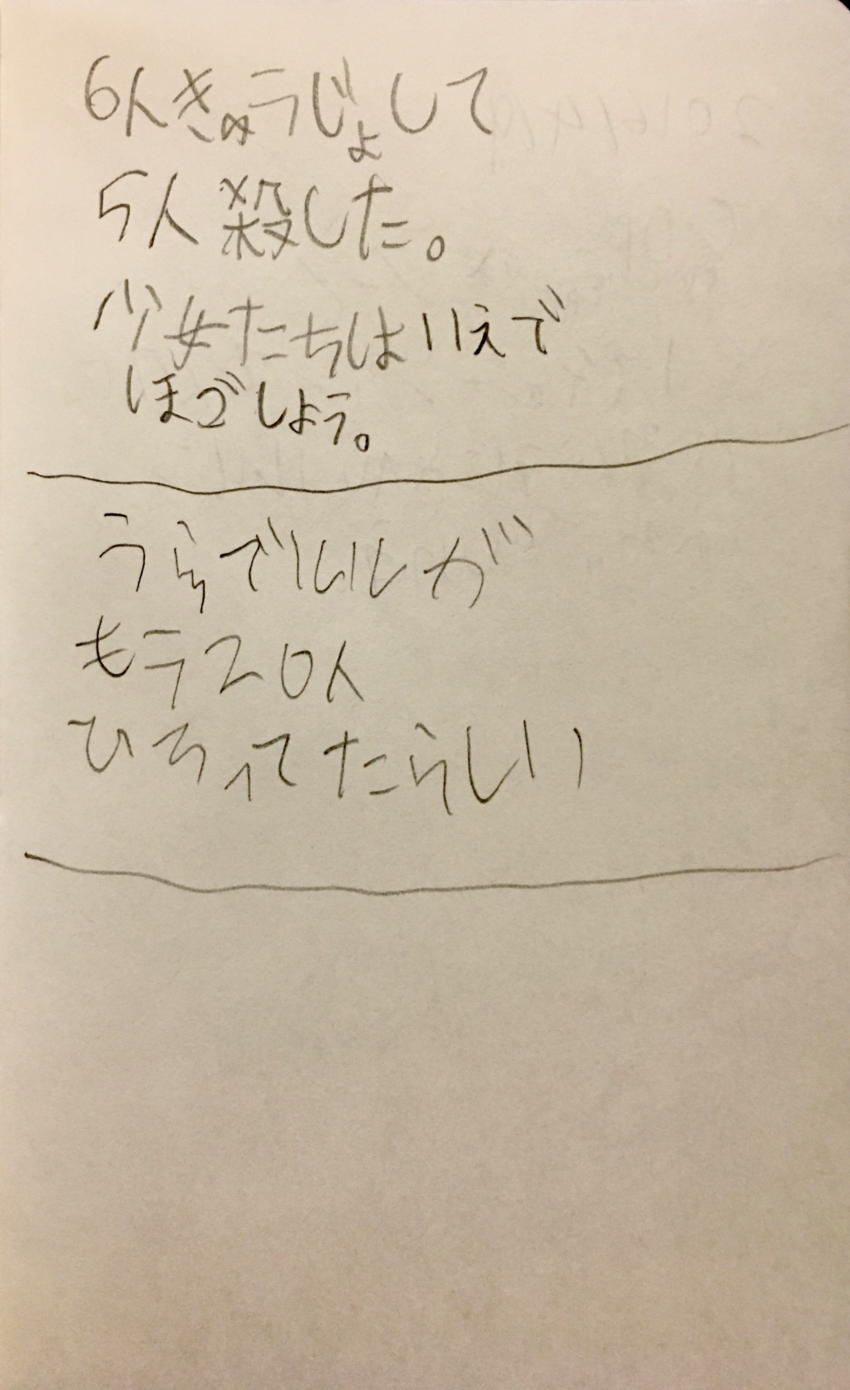 6人きゅうじょして
5人殺した。
少女たちはいえで
ほごしよう。
うらでいしが
もう20人
ひろってたらしい